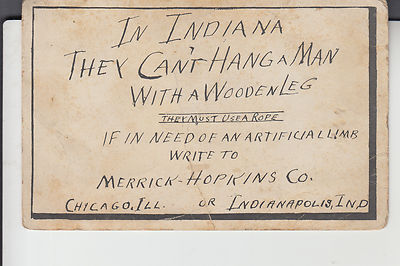 In Indiana
They Can't Hang a Man
With a Wooden Leg
They Must Use a Rope
If in need of an artificial limb
write to
Merrick-Hopkins Co.
Chicago, Ill. or Indianapolis, Ind